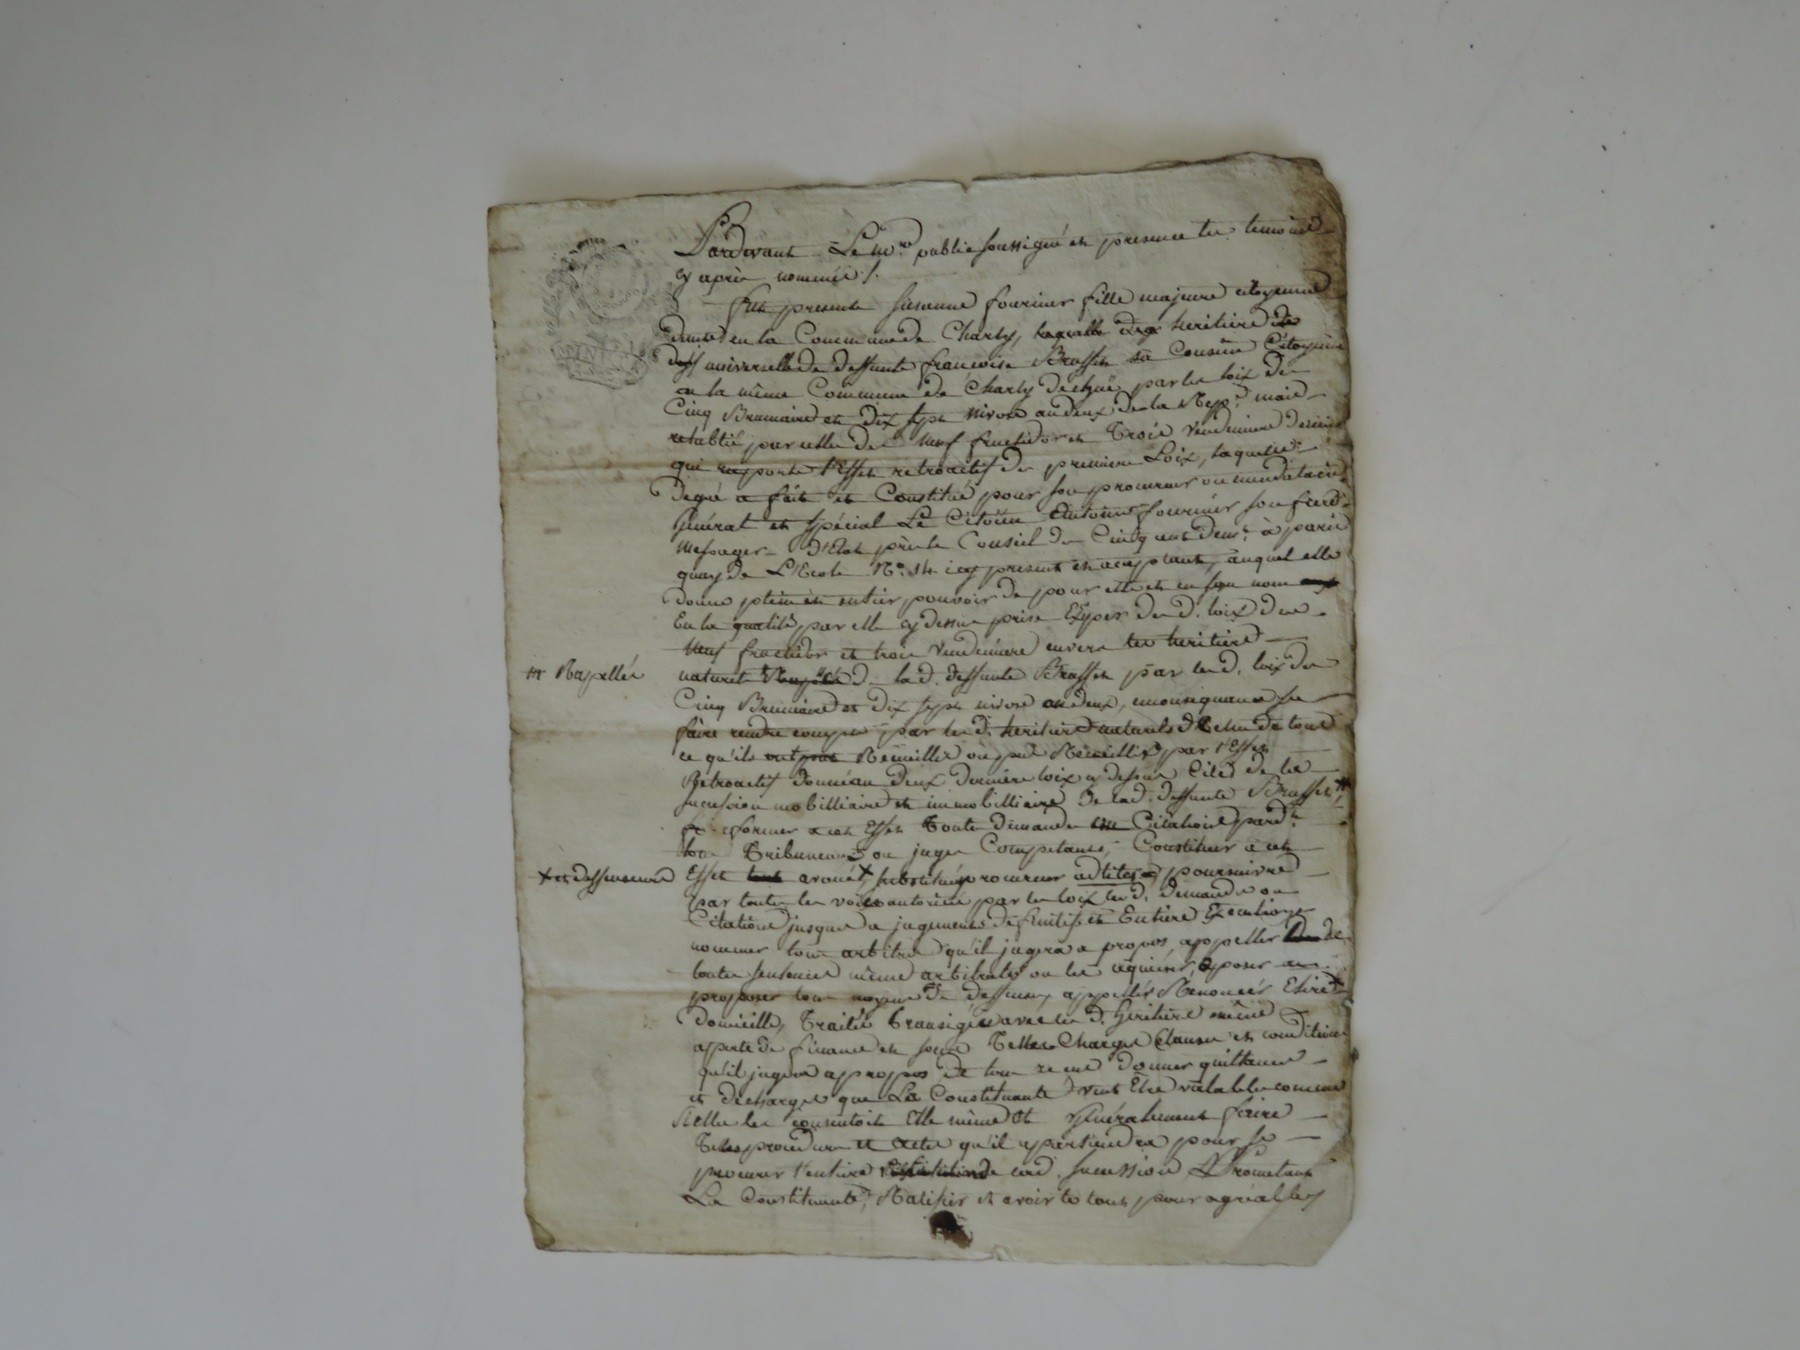 Pardevant Le No.re public soussigné et presence des temoins
cy après nommés /.
Fut presente Susanne fourier fille majeure citoyenne
dem.te en la Commune de Charly, laquelle heritiere
universelle de deffunte françoise Brassen sa Cousine Citoyenne
en la même Commune de Charly dechue par les loix des
Cinq Brumaire et dix sept nivose an deux de la Rep.e mais
retablie par celle des neuf fructidor et trois vendemiere dernier
qui rapporte l'Effet retroactif des premieres Loix, laquelle de
degré a fait et Constitué pour son procureur ou mandataire
général et spécial Le Citoïen Antoine fournier son frere
Messager d'Etat près le Conseil des Cinq cent dem.t à paris
quay de L'Ecole N.o 14 icy present et acceptant, auquel elle
donne plein et entier pouvoir de pour elle et en son nom
En la qualité par elle cy dessus prise Exiger des d. loix des
Neuf fructidor et trois Vendemiere envers les heritiers
naturels de la d. deffunte Brassen par les d. loix des
## Rapellés
Cinq Brumaire et dix sept nivose an deux, en consequence se
faire rendre compte par les d. heritiers naturels de tous
ce qu'ils Recueillis ou pu Recueillir par l'Effet
Retroactif donné aux deux dernieres loix cy dessus Citées de la
succession mobilliaire et immobilliaire de la d. deffunte Brassen
former a cet Effet Toute demande Citations pard.t
tous Tribunaux ou juges Competants, Constituer a cet
+ et deffenseurs
Effet avoués + substituer procureur ad lites poursuivre
par toutes les voies autorisées par les loix les d. demandes ou
Citations jusques a jugements definitifs et Entiere Execution
nommer tous arbitres qu'il jugera a propos, appeller de
toutes sentences même arbitrales ou les aquiescer, oposer
proposer tous moyens de deffenses, appeller Renoncer Elire
domicille, Traiter transiger avec les d. heritiers même
a perte de finance et sous Telles Charges Clauses et conditions
qu'il jugera a propos, de tous recus donner quittances
et decharges que La Constituante veut Être valables comme
si elle les consentoit Elle même et Generalement faire
Telles procedures et actes qu'il apartiendra pour se
procurer l'entiere de lad. succession Promettant
La Constituante, Ratifier et avoir le tout pour agréable